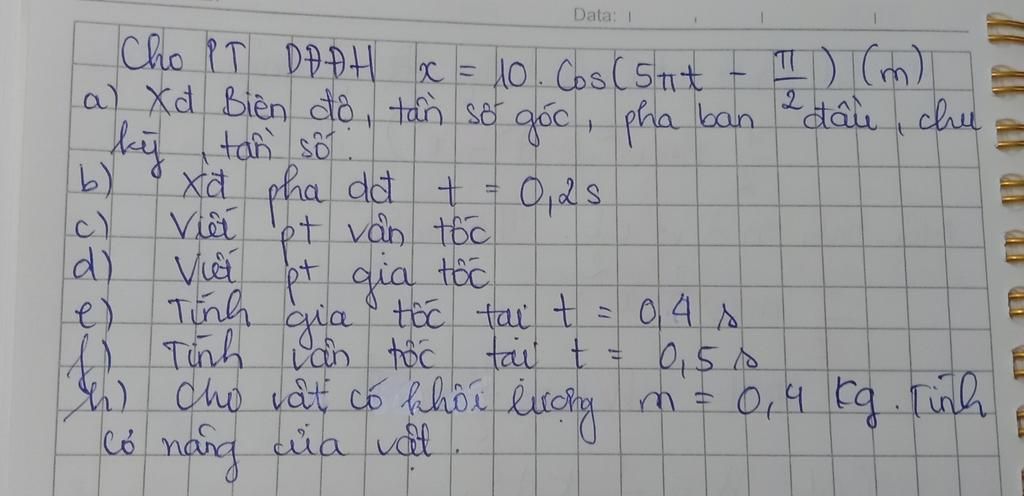 Data:
Cho PT DĐĐH x = 10. Cos(5πt - π/2) (m)
a) Xđ Biên độ, tần số góc, pha ban đầu, chu
kỳ, tần số.
b) Xđ pha dđ t = 0,2s
c) Viết pt vận tốc
d) Viết pt gia tốc
e) Tính gia tốc tại t = 0,4 s
f) Tính vận tốc tại t = 0,5 s
h) Cho vật có khối lượng m = 0,4 kg. Tính
cơ năng của vật.